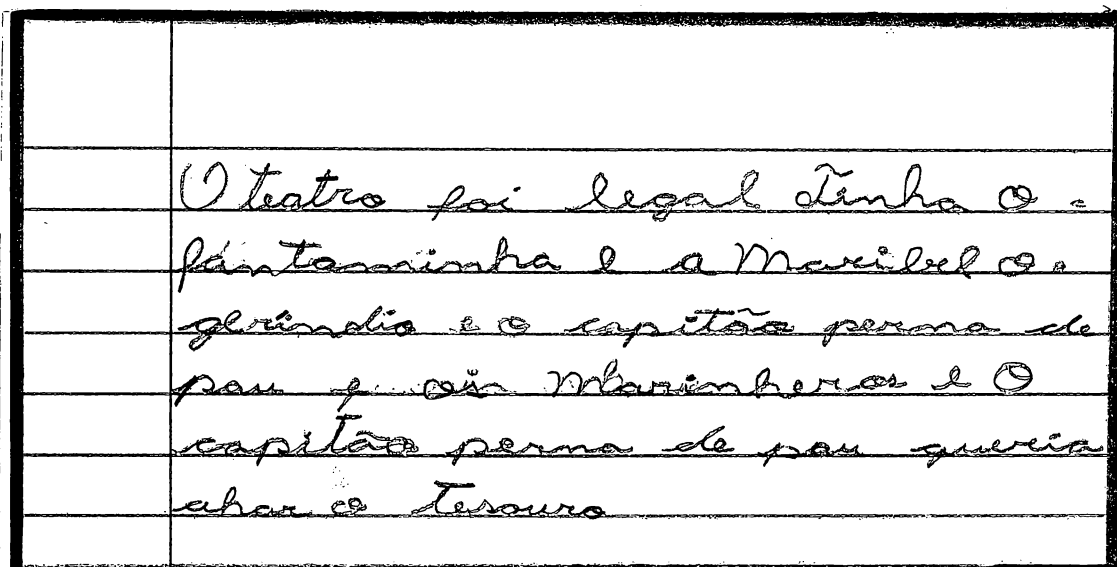 O teatro foi legal Tinha o
fantaminha e a Maribel o
gerindio e o capitão perna de
pau e os Marinheros e O
capitão perna de pau queria
ahar o tesouro